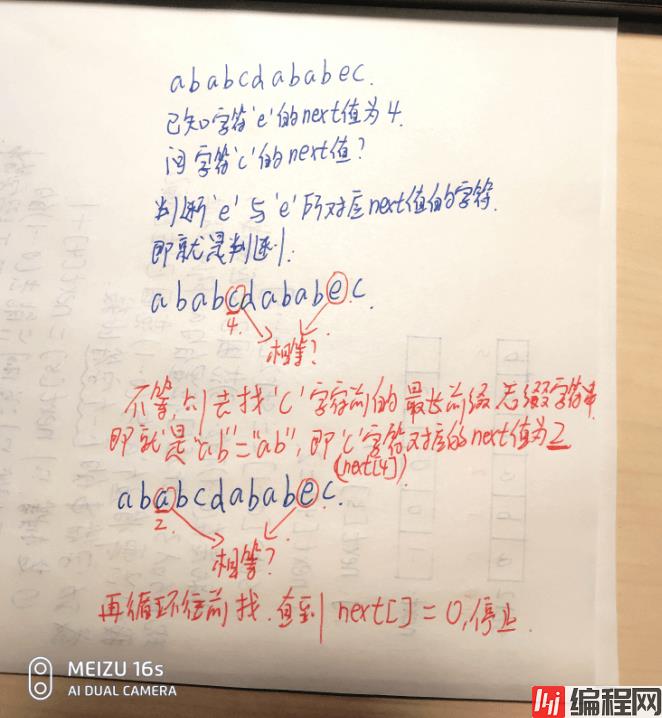 ababcdababec.
已知字符'e'的next值为4.
问字符'c'的next值?
判断'e'与'e'所对应next值的字符.
即就是判断
ababcdababec.
4.
相等?
不等,则去找'c'字符前的最长前缀后缀字符串
即就是"ab"="ab",即'c'字符对应的next值为2
(next[4])
ababcdababec.
2.
相等?
再循环往前找.直到next[]=0,停止.
MEIZU 16s
AI DUAL CAMERA
编程网